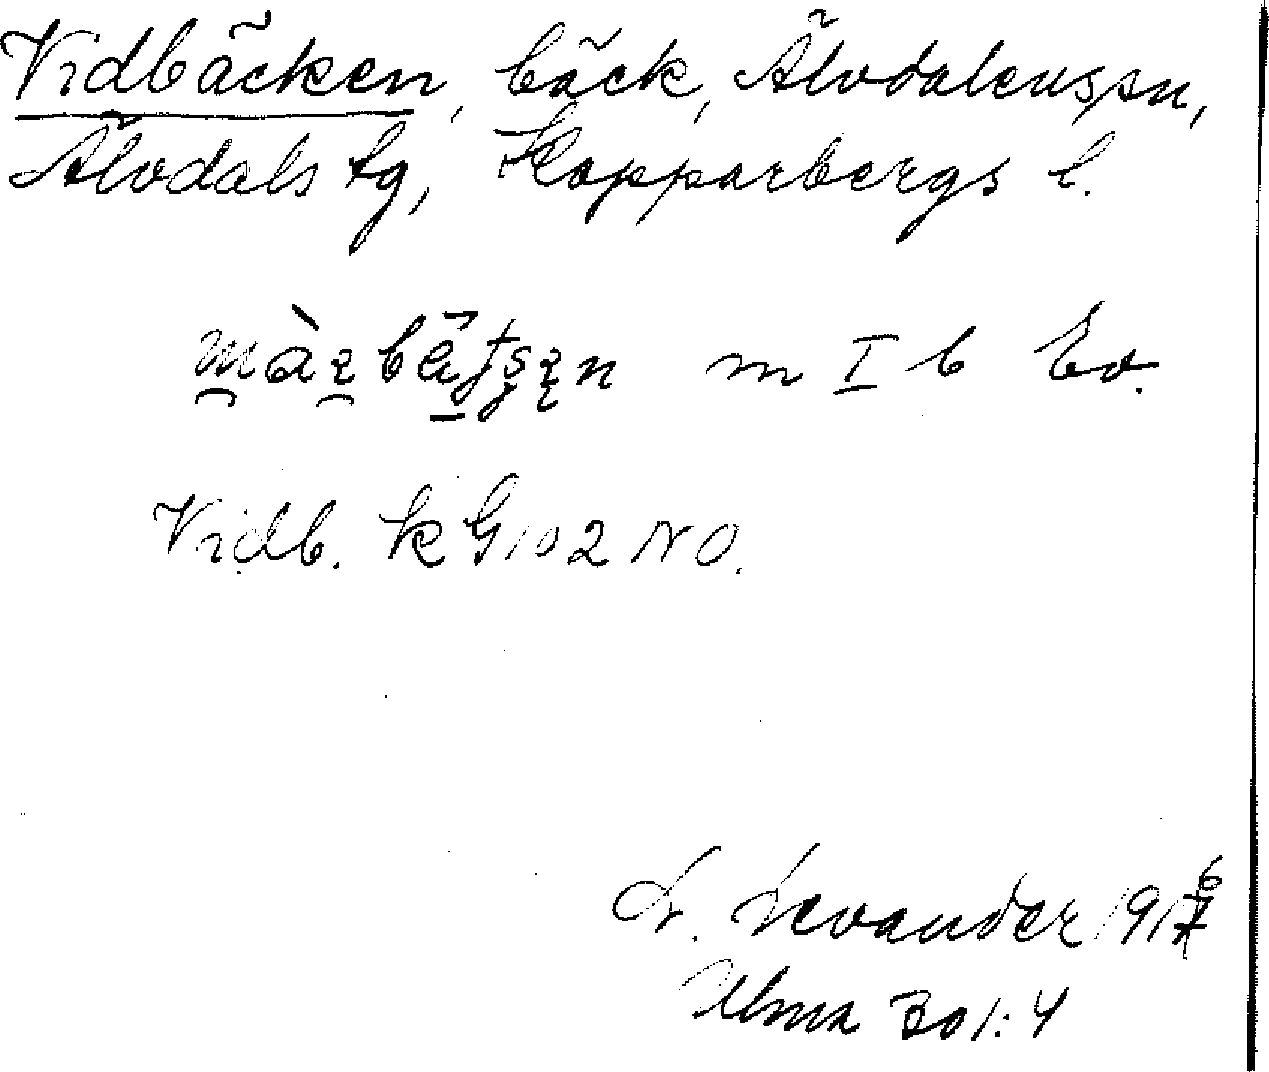 Vidbäcken, bäck, Älvdalens sn,
Älvdals tg, Kopparbergs l.
m I b Ev.
Vidb. k G 102 NO.
L. Levander 1916
Ulma 301:4